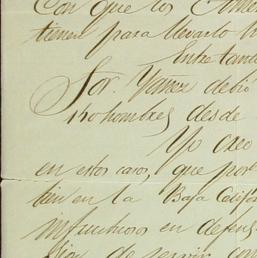 Con que los Ame
tienen para llevarlo
Entre tan
Sor. Yañez debió
140 hombres, desde
Yo creo
en estos casos, que por
tien en la Baja Califor
infructuosos en defens
de servir con